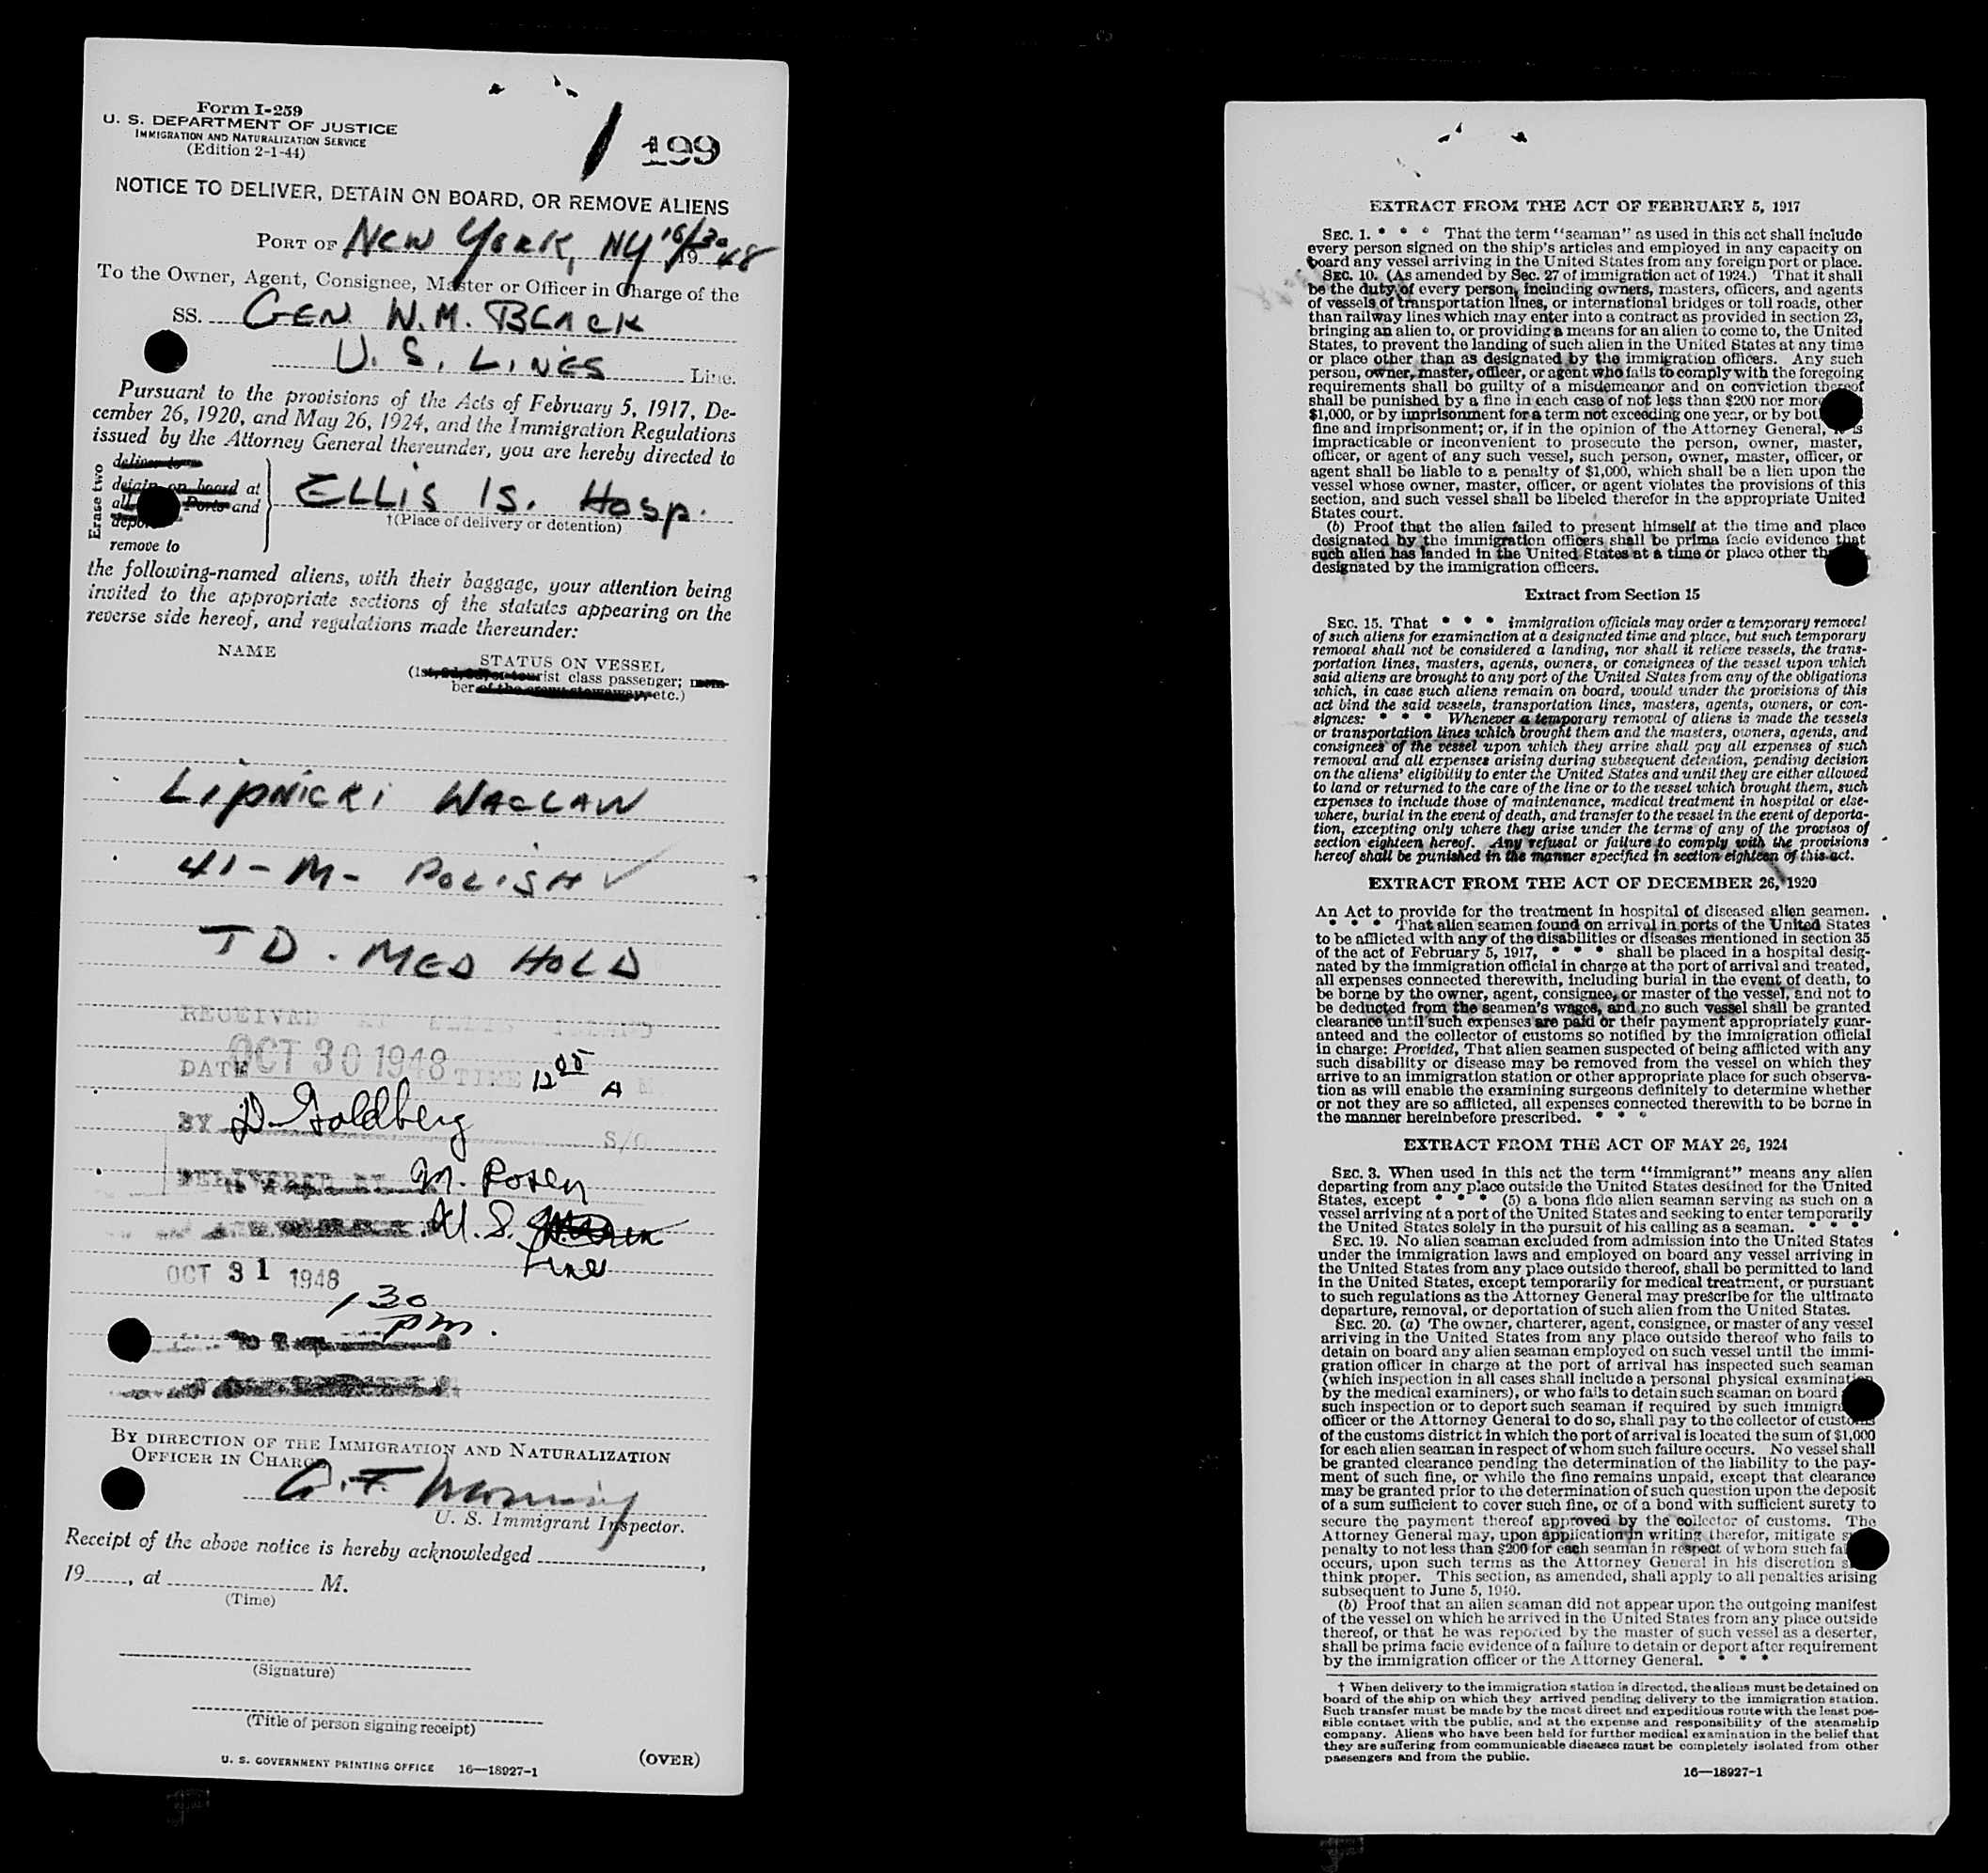 Form I-259
U. S. DEPARTMENT OF JUSTICE
IMMIGRATION AND NATURALIZATION SERVICE
(Edition 2-1-44)
199
NOTICE TO DELIVER, DETAIN ON BOARD, OR REMOVE ALIENS
PORT OF NEW YORK, NY 10/30 1948
To the Owner, Agent, Consignee, Master or Officer in Charge of the
SS. GEN W.M. BLACK
U.S. LINES Line.
Pursuant to the provisions of the Acts of February 5, 1917, De-
cember 26, 1920, and May 26, 1924, and the Immigration Regulations
issued by the Attorney General thereunder, you are hereby directed to
Erase two
deliver to
detain on board at
all Ports and
remove to
ELLIS IS. HOSP.
†(Place of delivery or detention)
the following-named aliens, with their baggage, your attention being
invited to the appropriate sections of the statutes appearing on the
reverse side hereof, and regulations made thereunder:
NAME
STATUS ON VESSEL
(1st, 2d, 3d, or tourist class passenger; mem-
ber of the crew, stowaway, etc.)
LIPNICKI WACLAW
41-M- POLISH ✓
TD. MED HOLD
RECEIVED AT ELLIS ISLAND
DATE OCT 30 1948 TIME 12 05 A M
BY D. Goldberg S/O
DELIVERED BY M. Rosen
U.S. Line
OCT 31 1948
1 30
pm.
BY DIRECTION OF THE IMMIGRATION AND NATURALIZATION
OFFICER IN CHARGE
U. S. Immigrant Inspector.
Receipt of the above notice is hereby acknowledged ,
19 , at M.
(Time)
(Signature)
(Title of person signing receipt)
U. S. GOVERNMENT PRINTING OFFICE 16—18927-1
(OVER)
EXTRACT FROM THE ACT OF FEBRUARY 5, 1917
SEC. 1. * * * That the term "seaman" as used in this act shall include
every person signed on the ship's articles and employed in any capacity on
board any vessel arriving in the United States from any foreign port or place.
SEC. 10. (As amended by Sec. 27 of immigration act of 1924.) That it shall
be the duty of every person, including owners, masters, officers, and agents
of vessels of transportation lines, or international bridges or toll roads, other
than railway lines which may enter into a contract as provided in section 23,
bringing an alien to, or providing a means for an alien to come to, the United
States, to prevent the landing of such alien in the United States at any time
or place other than as designated by the immigration officers. Any such
person, owner, master, officer, or agent who fails to comply with the foregoing
requirements shall be guilty of a misdemeanor and on conviction thereof
shall be punished by a fine in each case of not less than $200 nor more
$1,000, or by imprisonment for a term not exceeding one year, or by both
fine and imprisonment; or, if in the opinion of the Attorney General, it is
impracticable or inconvenient to prosecute the person, owner, master,
officer, or agent of any such vessel, such person, owner, master, officer, or
agent shall be liable to a penalty of $1,000, which shall be a lien upon the
vessel whose owner, master, officer, or agent violates the provisions of this
section, and such vessel shall be libeled therefor in the appropriate United
States court.
(b) Proof that the alien failed to present himself at the time and place
designated by the immigration officers shall be prima facie evidence that
such alien has landed in the United States at a time or place other than
designated by the immigration officers.
Extract from Section 15
SEC. 15. That * * * immigration officials may order a temporary removal
of such aliens for examination at a designated time and place, but such temporary
removal shall not be considered a landing, nor shall it relieve vessels, the trans-
portation lines, masters, agents, owners, or consignees of the vessel upon which
said aliens are brought to any port of the United States from any of the obligations
which, in case such aliens remain on board, would under the provisions of this
act bind the said vessels, transportation lines, masters, agents, owners, or con-
signees: * * * Whenever a temporary removal of aliens is made the vessels
or transportation lines which brought them and the masters, owners, agents, and
consignees of the vessel upon which they arrive shall pay all expenses of such
removal and all expenses arising during subsequent detention, pending decision
on the aliens' eligibility to enter the United States and until they are either allowed
to land or returned to the care of the line or to the vessel which brought them, such
expenses to include those of maintenance, medical treatment in hospital or else-
where, burial in the event of death, and transfer to the vessel in the event of deporta-
tion, excepting only where they arise under the terms of any of the provisos of
section eighteen hereof. Any refusal or failure to comply with the provisions
hereof shall be punished in the manner specified in section eighteen of this act.
EXTRACT FROM THE ACT OF DECEMBER 26, 1920
An Act to provide for the treatment in hospital of diseased alien seamen.
* * * That alien seamen found on arrival in ports of the United States
to be afflicted with any of the disabilities or diseases mentioned in section 35
of the act of February 5, 1917, * * * shall be placed in a hospital desig-
nated by the immigration official in charge at the port of arrival and treated,
all expenses connected therewith, including burial in the event of death, to
be borne by the owner, agent, consignee, or master of the vessel, and not to
be deducted from the seamen's wages, and no such vessel shall be granted
clearance until such expenses are paid or their payment appropriately guar-
anteed and the collector of customs so notified by the immigration official
in charge: Provided, That alien seamen suspected of being afflicted with any
such disability or disease may be removed from the vessel on which they
arrive to an immigration station or other appropriate place for such observa-
tion as will enable the examining surgeons definitely to determine whether
or not they are so afflicted, all expenses connected therewith to be borne in
the manner hereinbefore prescribed. * * *
EXTRACT FROM THE ACT OF MAY 26, 1924
SEC. 3. When used in this act the term "immigrant" means any alien
departing from any place outside the United States destined for the United
States, except * * * (5) a bona fide alien seaman serving as such on a
vessel arriving at a port of the United States and seeking to enter temporarily
the United States solely in the pursuit of his calling as a seaman. * * *
SEC. 19. No alien seaman excluded from admission into the United States
under the immigration laws and employed on board any vessel arriving in
the United States from any place outside thereof, shall be permitted to land
in the United States, except temporarily for medical treatment, or pursuant
to such regulations as the Attorney General may prescribe for the ultimate
departure, removal, or deportation of such alien from the United States.
SEC. 20. (a) The owner, charterer, agent, consignee, or master of any vessel
arriving in the United States from any place outside thereof who fails to
detain on board any alien seaman employed on such vessel until the immi-
gration officer in charge at the port of arrival has inspected such seaman
(which inspection in all cases shall include a personal physical examination
by the medical examiners), or who fails to detain such seaman on board
such inspection or to deport such seaman if required by such immigra
officer or the Attorney General to do so, shall pay to the collector of customs
of the customs district in which the port of arrival is located the sum of $1,000
for each alien seaman in respect of whom such failure occurs. No vessel shall
be granted clearance pending the determination of the liability to the pay-
ment of such fine, or while the fine remains unpaid, except that clearance
may be granted prior to the determination of such question upon the deposit
of a sum sufficient to cover such fine, or of a bond with sufficient surety to
secure the payment thereof approved by the collector of customs. The
Attorney General may, upon application in writing therefor, mitigate
penalty to not less than $200 for each seaman in respect of whom such fai
occurs, upon such terms as the Attorney General in his discretion
think proper. This section, as amended, shall apply to all penalties arising
subsequent to June 5, 1940.
(b) Proof that an alien seaman did not appear upon the outgoing manifest
of the vessel on which he arrived in the United States from any place outside
thereof, or that he was reported by the master of such vessel as a deserter,
shall be prima facie evidence of a failure to detain or deport after requirement
by the immigration officer or the Attorney General. * * *
† When delivery to the immigration station is directed, the aliens must be detained on
board of the ship on which they arrived pending delivery to the immigration station.
Such transfer must be made by the most direct and expeditious route with the least pos-
sible contact with the public, and at the expense and responsibility of the steamship
company. Aliens who have been held for further medical examination in the belief that
they are suffering from communicable diseases must be completely isolated from other
passengers and from the public.
16—18927-1